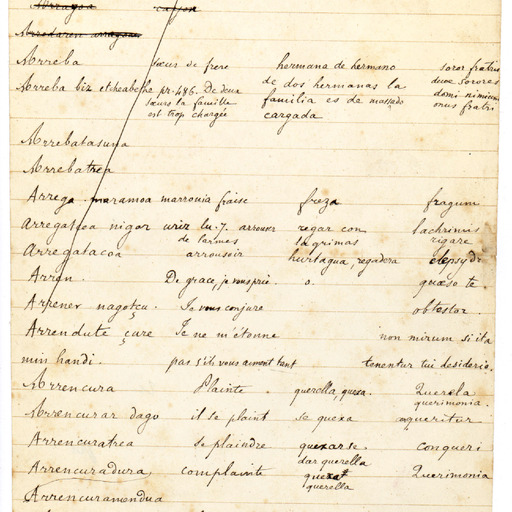 Arreba sœur de frere hermana de hermano soror fratris
Arreba biz etcheabethe pr. 486. De deux de dos hermanas la duæ sorores
sœurs la famille familia es de massado domi nimium
est trop chargée cargada onus fratri
Arrebatasuna
Arrebatzea
Arrega maramoa marrouia fraise freza fragum
Arregatcea nigar uriz lu. 7. arrouser regar con lachrimis
de larmes lagrimas rigare
Arregatacoa arrousoir hurtagua, regadera clepsydr
Arren. De grace, je vous prie. o. quæso te.
Arrener nagotçu. Je vous conjure obtestor.
Arrendute çure Je ne m'étonne non mirum si ita
min handi. pas s'ils vous aiment tant tenentur tui desiderio.
Arrencura Plainte querella, quexa. Querela
querimonia.
Arrencurar dago il se plaint se quexa queritur
Arrencuratcea se plaindre quexarse. conqueri
dar querella
Arrencuradura complainte quexa querella Querimonia
Arrencuramendua